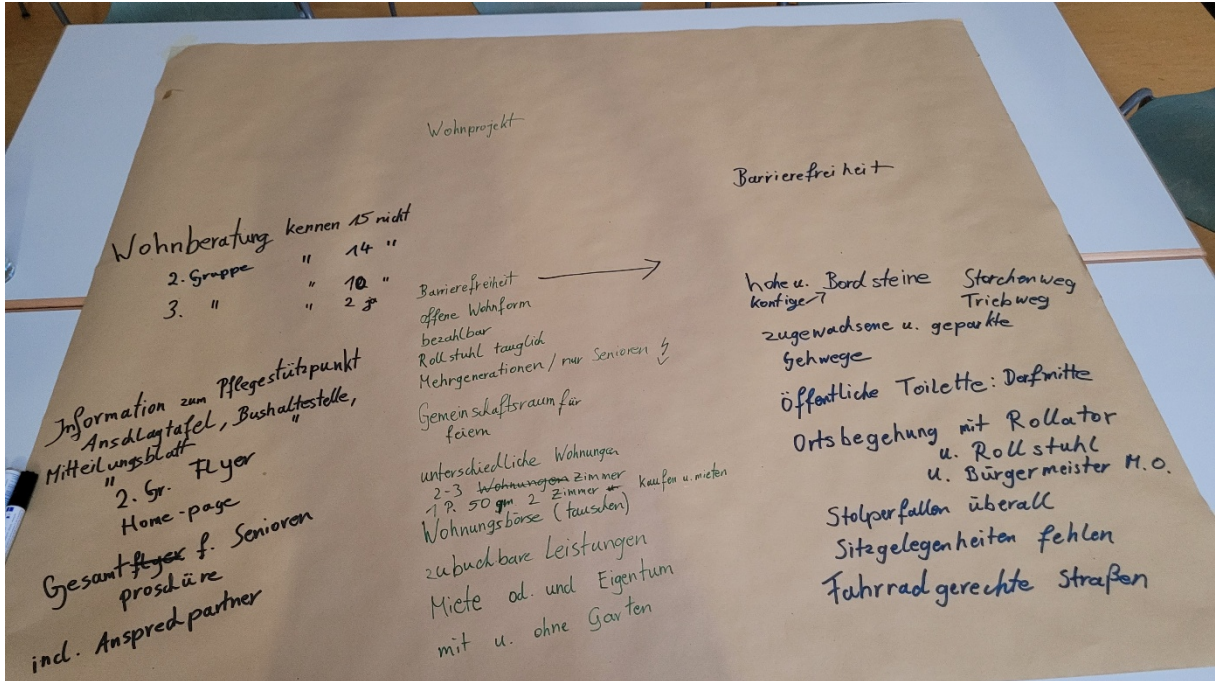 Wohnprojekt
Barrierefreiheit
Wohnberatung kennen 15 nicht
2. Gruppe " 14 "
3. " " 10 "
" 2 
Information zum Pflegestützpunkt
Anschlagtafel, Bushaltestelle,
Mitteilungsblatt "
" 2. Gr. Flyer
Home-page
Gesamt flyer f. Senioren
proschüre
incl. Anspredpartner
Barrierefreiheit
offene Wohnform
bezahlbar
Rollstuhl tauglich
Mehrgenerationen / nur Senioren
Gemeinschaftsraum für
feiern
unterschiedliche Wohnungen
2-3 Wohnungen Zimmer
1 P. 50 qm 2 Zimmer kaufen u. mieten
Wohnungsbörse (tauschen)
zubuchbare Leistungen
Miete od. und Eigentum
mit u. ohne Garten
hohe u. Bordsteine Storchenweg
kantige Triebweg
zugewachsene u. geparkte
Gehwege
öffentliche Toilette: Dorfmitte
Ortsbegehung mit Rollator
u. Rollstuhl
u. Bürgermeister M.O.
Stolperfallen überall
Sitzgelegenheiten fehlen
Fahrradgerechte Straßen